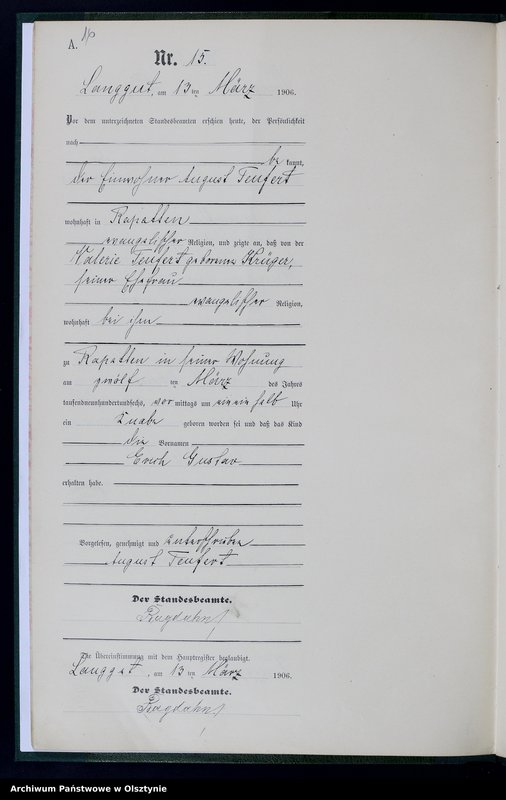 A.
16
Nr. 15.
Langgut, am 13 ten März 1906.
Vor dem unterzeichneten Standesbeamten erschien heute, der Persönlichkeit
nach
be kannt,
der Einwohner August Teufert
wohnhaft in Rapatten
evangelischer Religion, und zeigte an, daß von der
Valerie Teufert geborenen Krüger,
seiner Ehefrau
evangelischer Religion,
wohnhaft bei ihm
zu Rapatten in seiner Wohnung
am zwölf ten März des Jahres
tausendneunhundertundsechs, vor mittags um ein halb Uhr
ein Knabe geboren worden sei und daß das Kind
die Vornamen
Erich Gustav
erhalten habe.
Vorgelesen, genehmigt und unterschrieben
August Teufert
Der Standesbeamte.
Ragdahn
Die Übereinstimmung mit dem Hauptregister beglaubigt.
Langgut, am 13 ten März 1906.
Der Standesbeamte.
Ragdahn
Archiwum Państwowe w Olsztynie